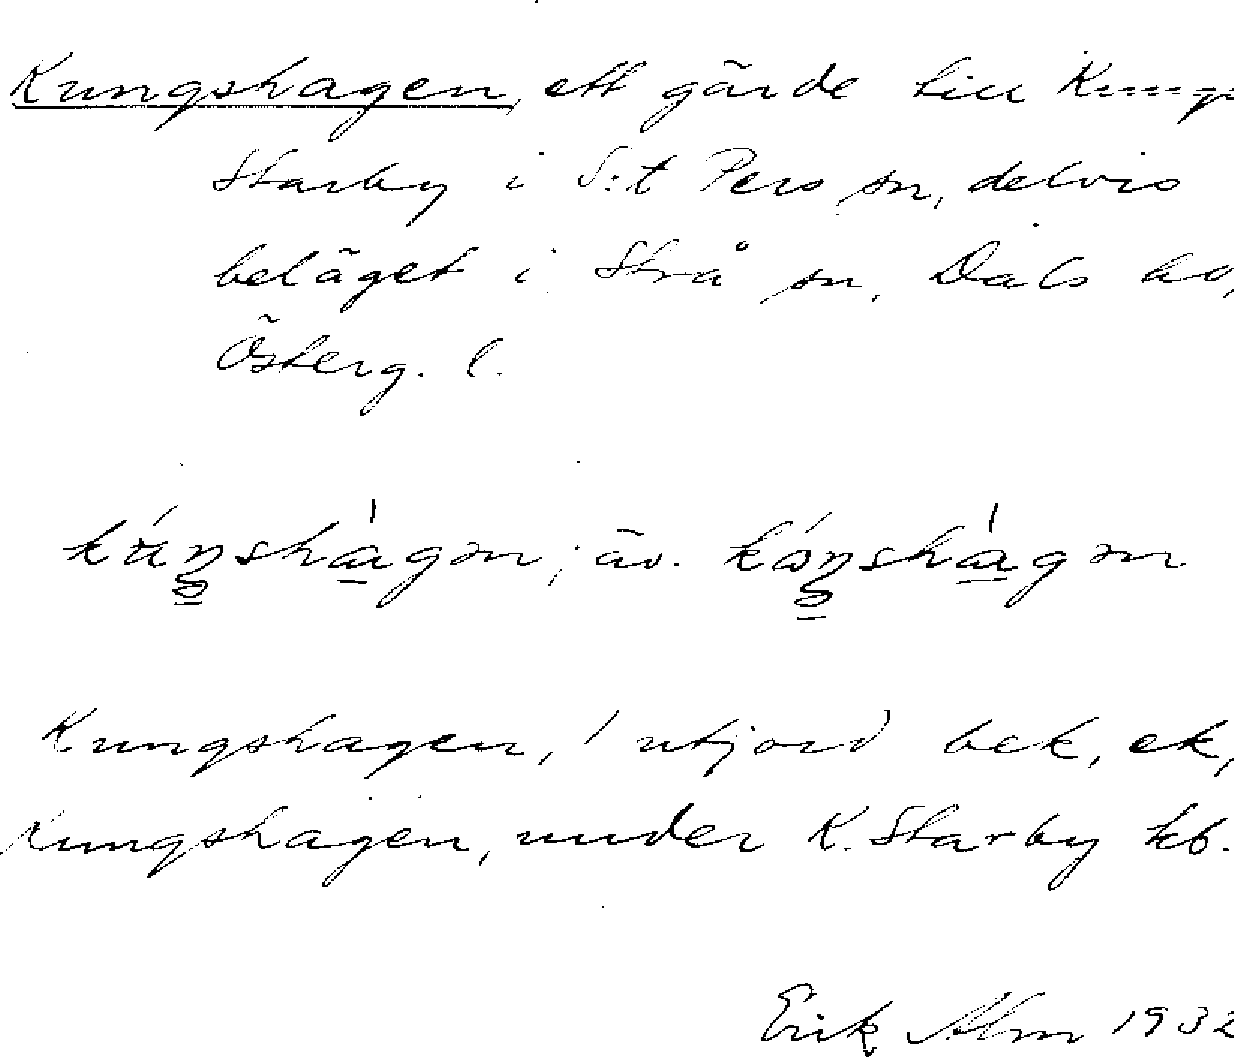 Kungshagen, ett gärde till Kungs
Starby i S:t Pers sn, delvis
beläget i Strå sn, Dals hd,
Österg. l.
kúŋshàgən; äv. kóŋshàgən
Kungshagen, 1 utjord bek, ek,
Kungshagen, under K. Starby kb.
Erik Alm 1932